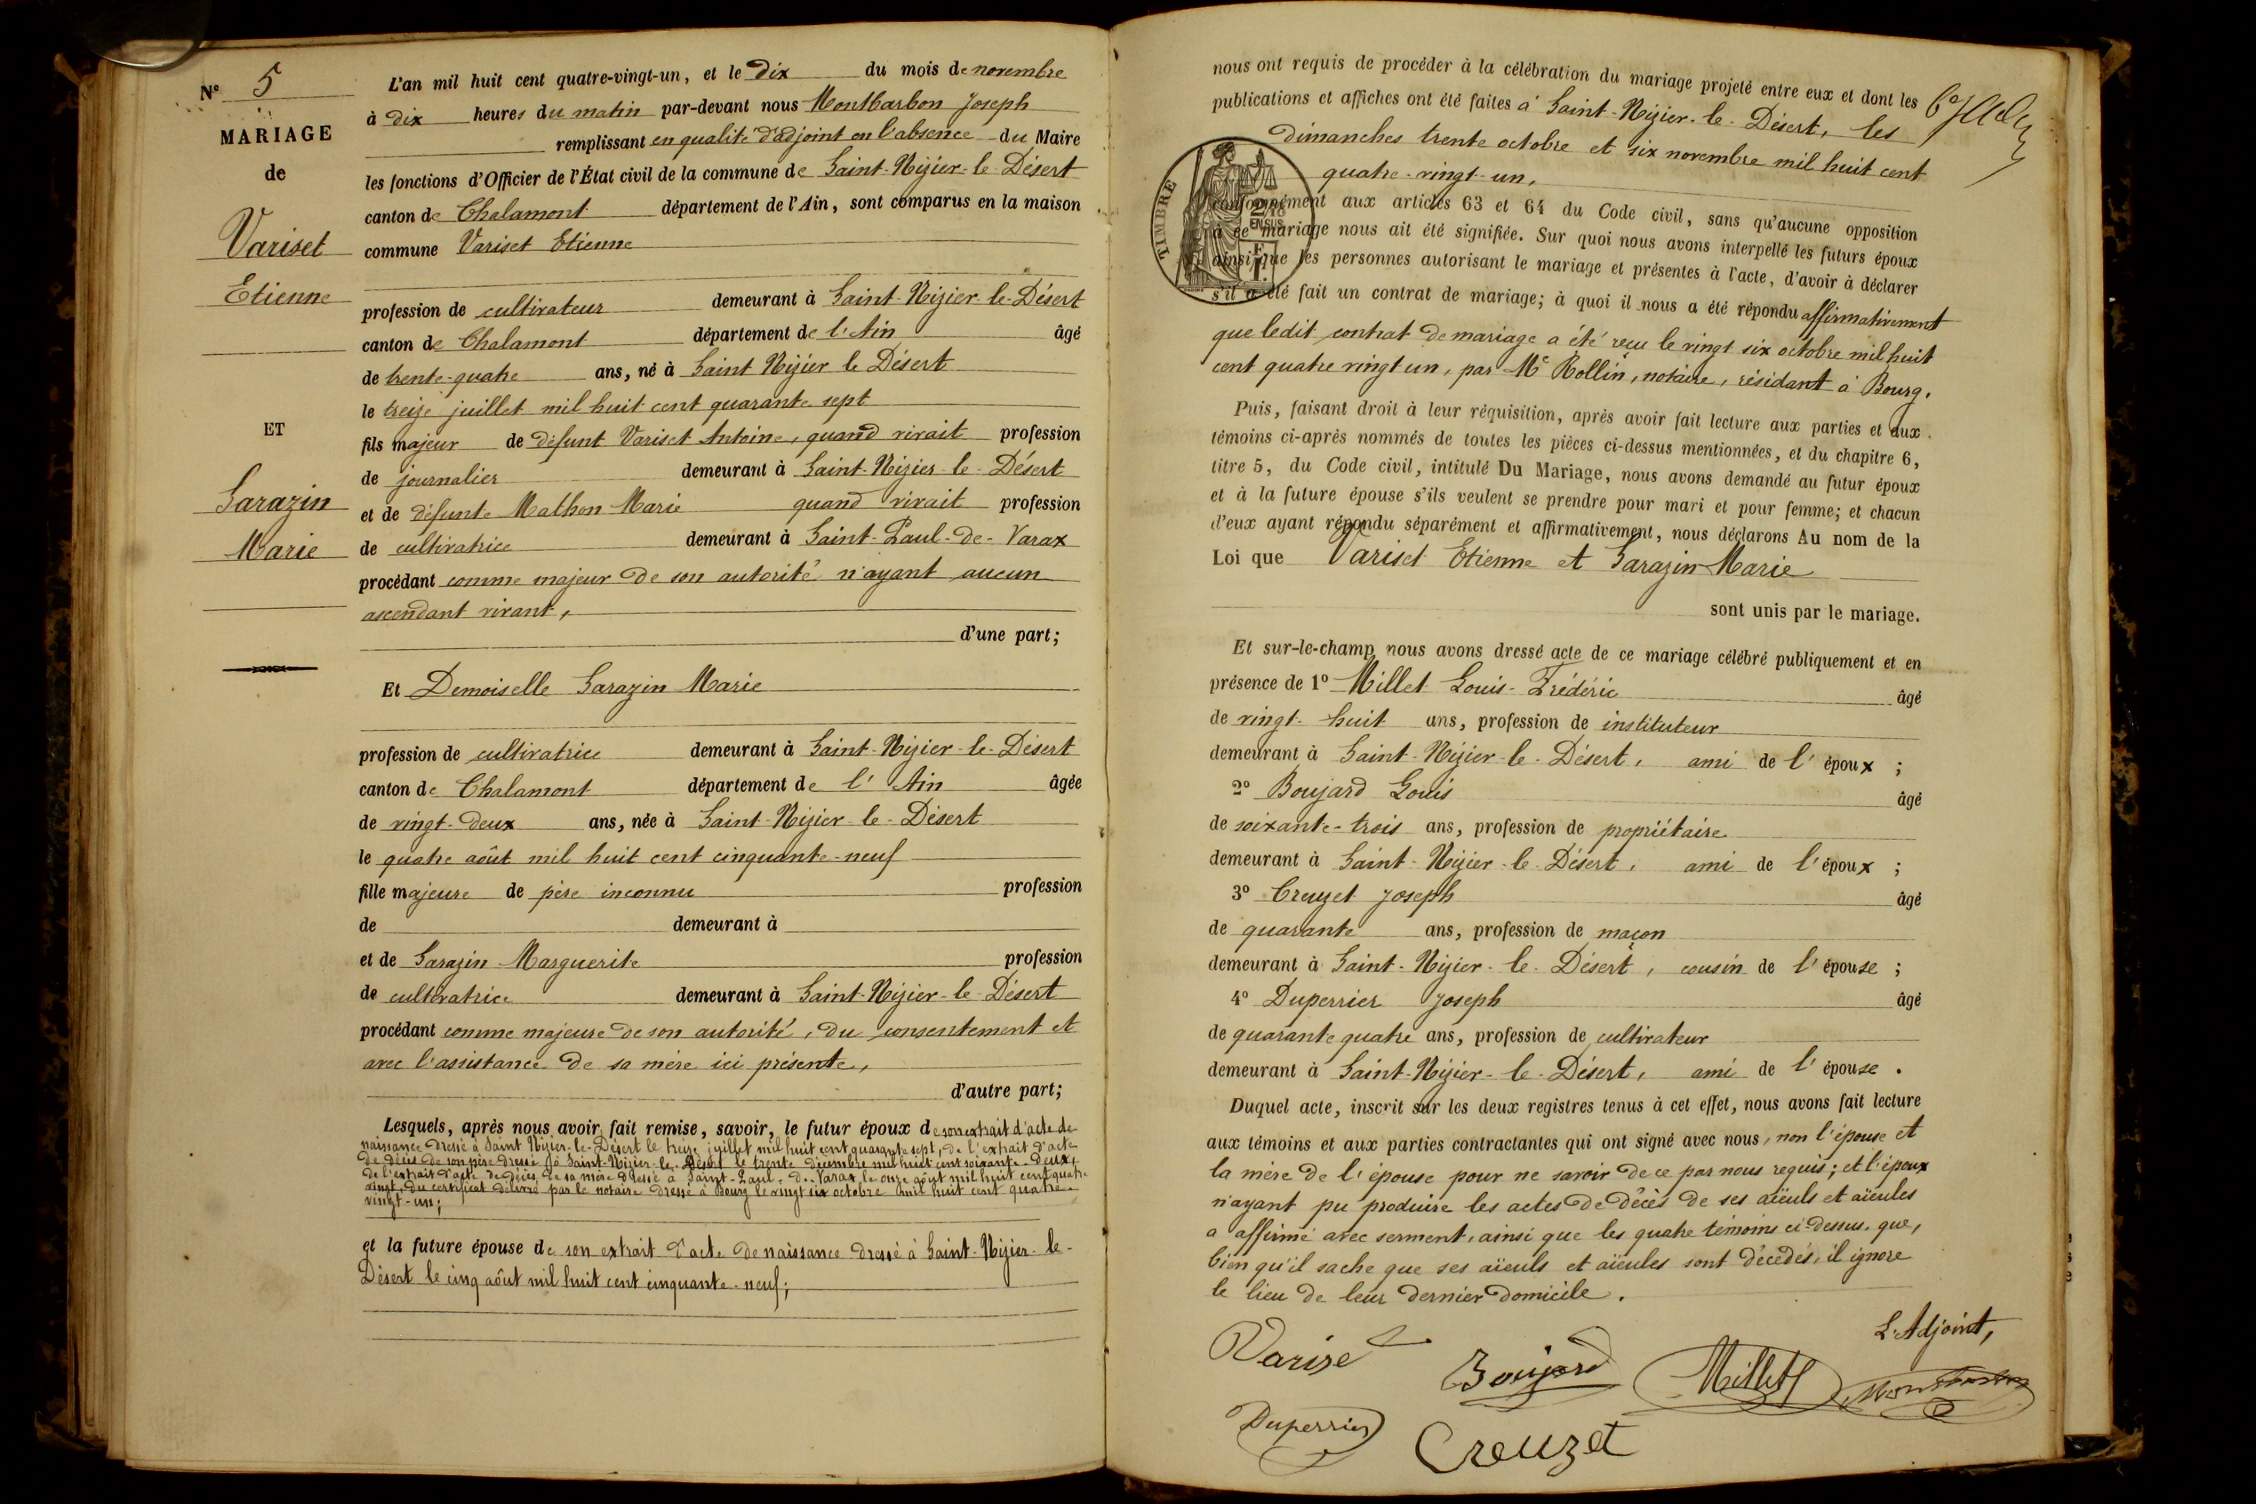 N° 5
MARIAGE
de
Variset
Etienne
ET
Sarazin
Marie
L'an mil huit cent quatre-vingt-un, et le Dix du mois de novembre
à dix heures du matin par-devant nous Montbarbon Joseph
remplissant en qualité d'adjoint en l'absence du Maire
les fonctions d'Officier de l'État civil de la commune de Saint-Nizier-le-Désert
canton de Chalamont département de l'Ain, sont comparus en la maison
commune Variset Etienne
profession de cultivateur demeurant à Saint-Nizier-le-Désert
canton de Chalamont département de l'Ain âgé
de trente-quatre ans, né à Saint Nizier le Désert
le treize juillet mil huit cent quarante sept
fils majeur de défunt Variset Antoine, quand vivait profession
de journalier demeurant à Saint-Nizier-le-Désert
et de défunte Mathon Marie quand vivait profession
de cultivatrice demeurant à Saint-Paul-de-Varax
procédant comme majeur de son autorité n'ayant aucun
ascendant vivant,
d'une part;
Et Demoiselle Sarazin Marie
profession de cultivatrice demeurant à Saint-Nizier-le-Désert
canton de Chalamont département de l'Ain âgée
de vingt-deux ans, née à Saint-Nizier-le-Désert
le quatre août mil huit cent cinquante-neuf
fille majeure de père inconnu profession
de demeurant à
et de Sarazin Marguerite profession
de cultivatrice demeurant à Saint-Nizier-le-Désert
procédant comme majeure de son autorité, du consentement et
avec l'assistance de sa mère ici présente,
d'autre part;
Lesquels, après nous avoir fait remise, savoir, le futur époux de son extrait d'acte de
naissance dressé à Saint Nizier-le-Désert le treize juillet mil huit cent quarante sept, de l'extrait d'acte
de décès de son père dressé à Saint-Nizier-le-Désert le trente décembre mil huit cent soixante-deux,
de l'extrait d'acte de décès de sa mère dressé à Saint-Paul-de-Varax le onze août mil huit cent quatre
vingt, du certificat délivré par le notaire dressé à Bourg le vingt six octobre mil huit cent quatre
vingt-un;
et la future épouse de son extrait d'acte de naissance dressé à Saint-Nizier-le-
Désert le cinq août mil huit cent cinquante-neuf;
nous ont requis de procéder à la célébration du mariage projeté entre eux et dont les
publications et affiches ont été faites à Saint-Nizier-le-Désert, les
dimanches trente octobre et six novembre mil huit cent
quatre-vingt-un,
TIMBRE
conformément aux articles 63 et 64 du Code civil, sans qu'aucune opposition
à ce mariage nous ait été signifiée. Sur quoi nous avons interpellé les futurs époux
ainsi que les personnes autorisant le mariage et présentes à l'acte, d'avoir à déclarer
s'il a été fait un contrat de mariage; à quoi il nous a été répondu affirmativement
que ledit contrat de mariage a été reçu le vingt six octobre mil huit
cent quatre vingt un, par Me Rollin, notaire, résidant à Bourg.
Puis, faisant droit à leur réquisition, après avoir fait lecture aux parties et aux
témoins ci-après nommés de toutes les pièces ci-dessus mentionnées, et du chapitre 6,
titre 5, du Code civil, intitulé Du Mariage, nous avons demandé au futur époux
et à la future épouse s'ils veulent se prendre pour mari et pour femme; et chacun
d'eux ayant répondu séparément et affirmativement, nous déclarons Au nom de la
Loi que Variset Etienne et Sarazin Marie
sont unis par le mariage.
Et sur-le-champ nous avons dressé acte de ce mariage célébré publiquement et en
présence de 1° Millet Louis-Frédéric âgé
de vingt-huit ans, profession de instituteur
demeurant à Saint-Nizier-le-Désert, ami de l'époux ;
2° Boujard Louis âgé
de soixante-trois ans, profession de propriétaire
demeurant à Saint-Nizier-le-Désert, ami de l'époux ;
3° Creuzet Joseph âgé
de quarante ans, profession de maçon
demeurant à Saint-Nizier-le-Désert, cousin de l'épouse ;
4° Duperrier Joseph âgé
de quarante quatre ans, profession de cultivateur
demeurant à Saint-Nizier-le-Désert, ami de l'épouse .
Duquel acte, inscrit sur les deux registres tenus à cet effet, nous avons fait lecture
aux témoins et aux parties contractantes qui ont signé avec nous, non l'épouse et
la mère de l'épouse pour ne savoir de ce par nous requis; et l'époux
n'ayant pu produire les actes de décès de ses aïeuls et aïeules
a affirmé avec serment, ainsi que les quatre témoins ci-dessus, que,
bien qu'il sache que ses aïeuls et aïeules sont décédés, il ignore
le lieu de leur dernier domicile.
L'Adjoint,
Varise
Boujard
Millet
Montbarbon
Duperrier
Creuzet